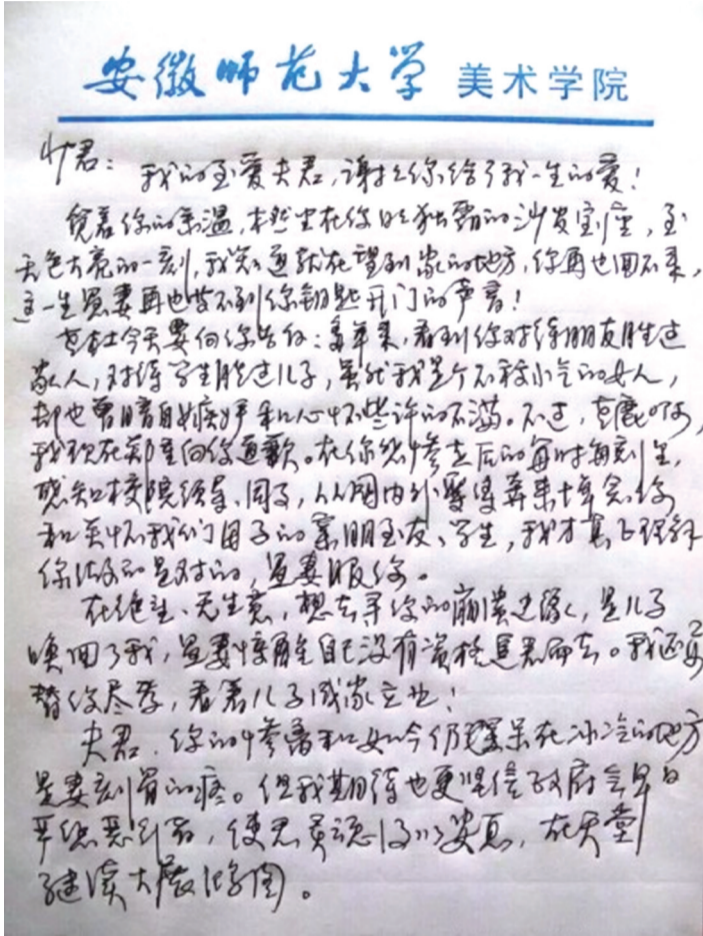 安徽师范大学 美术学院
君：我的至爱夫君，谢谢你给了我一生的爱！
凭着你的余温，木然坐在你的独霸的沙发宝座，至
天色大亮的一刻，我知道就在望到家的地方，你再也回不来，
这一生冥妻再也盼不到你钥匙开门的声音！
今天要向你告白：多年来，看到你对待朋友胜过
家人，对待学生胜过儿子，虽然我是个不较小气的女人，
却也曾暗自嫉妒和心怀些许的不满。不过，
我现在郑重向你道歉。在你惨走后的每时每刻里，
感知校院领导、同事，从国内外奔来悼念你
和关怀我们母子的亲朋至友、学生，我才真正理解
你做的是对的，妻服你。
在绝望、无生意，想去寻你的崩溃边缘，是儿子
唤回了我，妻懂醒自己没有资格离去。我还要
替你尽孝，看着儿子成家立业！
夫君，你的惨离和如今仍呆在冰冷的地方
是妻刻骨的疼。但我期待也更坚信政府会早日
严惩恶，使君英魂得以安息，在天堂
继续大展鸿图。